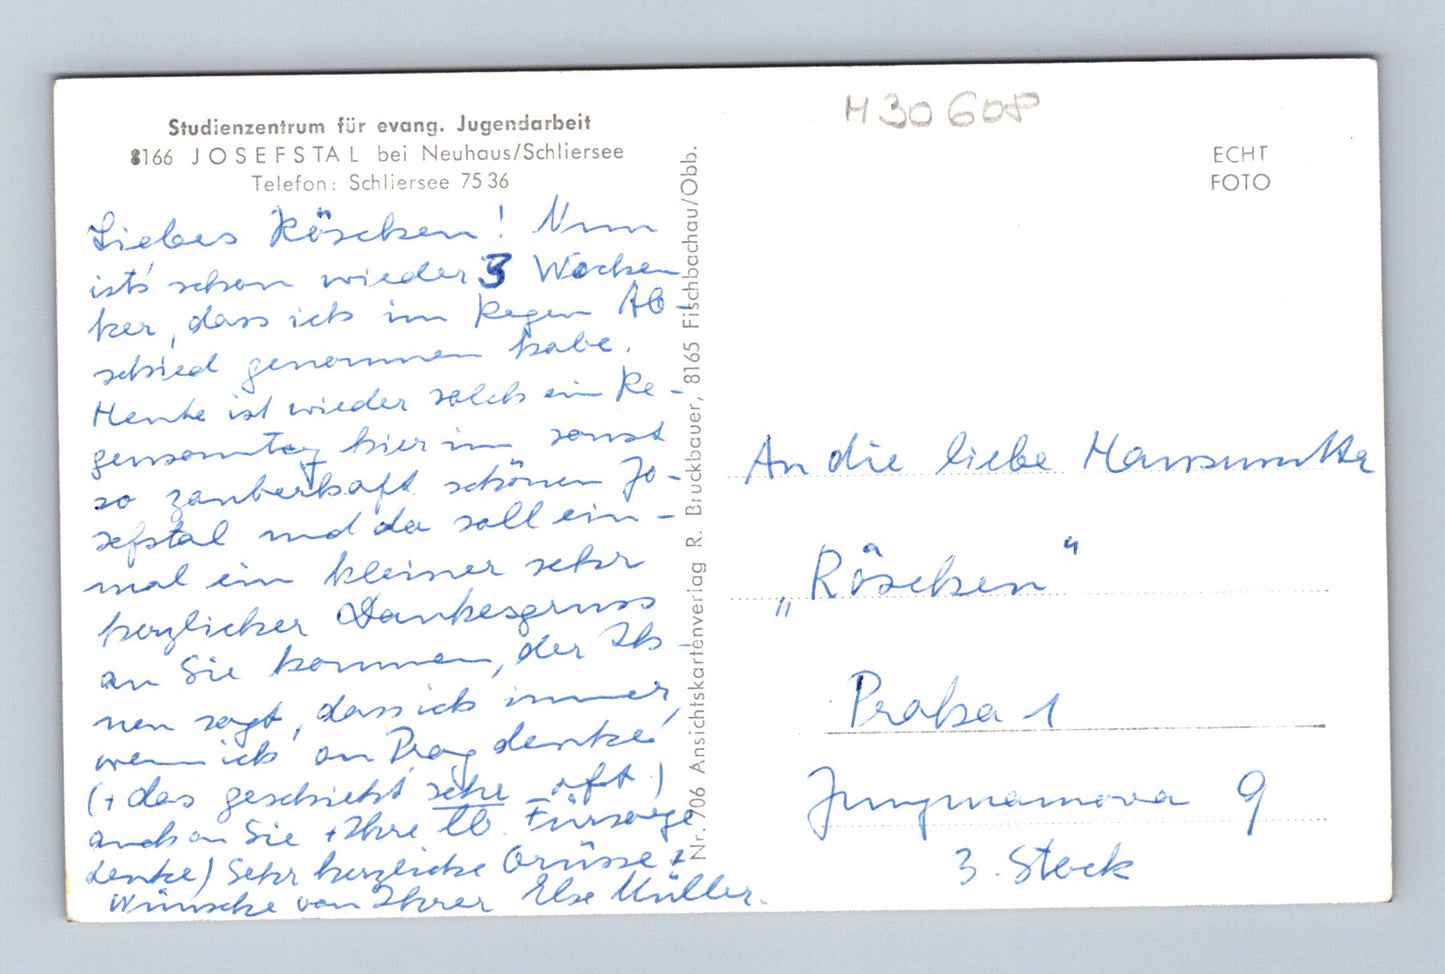 Studienzentrum für evang. Jugendarbeit
8166 JOSEFSTAL bei Neuhaus/Schliersee
Telefon: Schliersee 75 36
Liebes Röschen! Nun
ist's schon wieder 3 Wochen
her, dass ich im Regen Ab-
schied genommen habe.
Heute ist wieder solch ein Re-
gensonntag hier im sonst
so zauberhaft schönen Jo-
sefstal und da soll ein-
mal ein kleiner sehr
herzlicher Dankesgruss
an Sie kommen, der Ih-
nen sagt, dass ich immer,
wenn ich an Prag denke
(+ das geschieht sehr oft)
auch an Sie + Ihre lb. Fürsorge
denke) Sehr herzliche Grüsse +
Wünsche von Ihrer Else Müller.
Nr. 706 Ansichtskartenverlag R. Bruckbauer, 8165 Fischbachau/Obb.
H30608
ECHT
FOTO
An die liebe Hausmutter
„Röschen"
Praha 1
Jungmannova 9
3. Stock